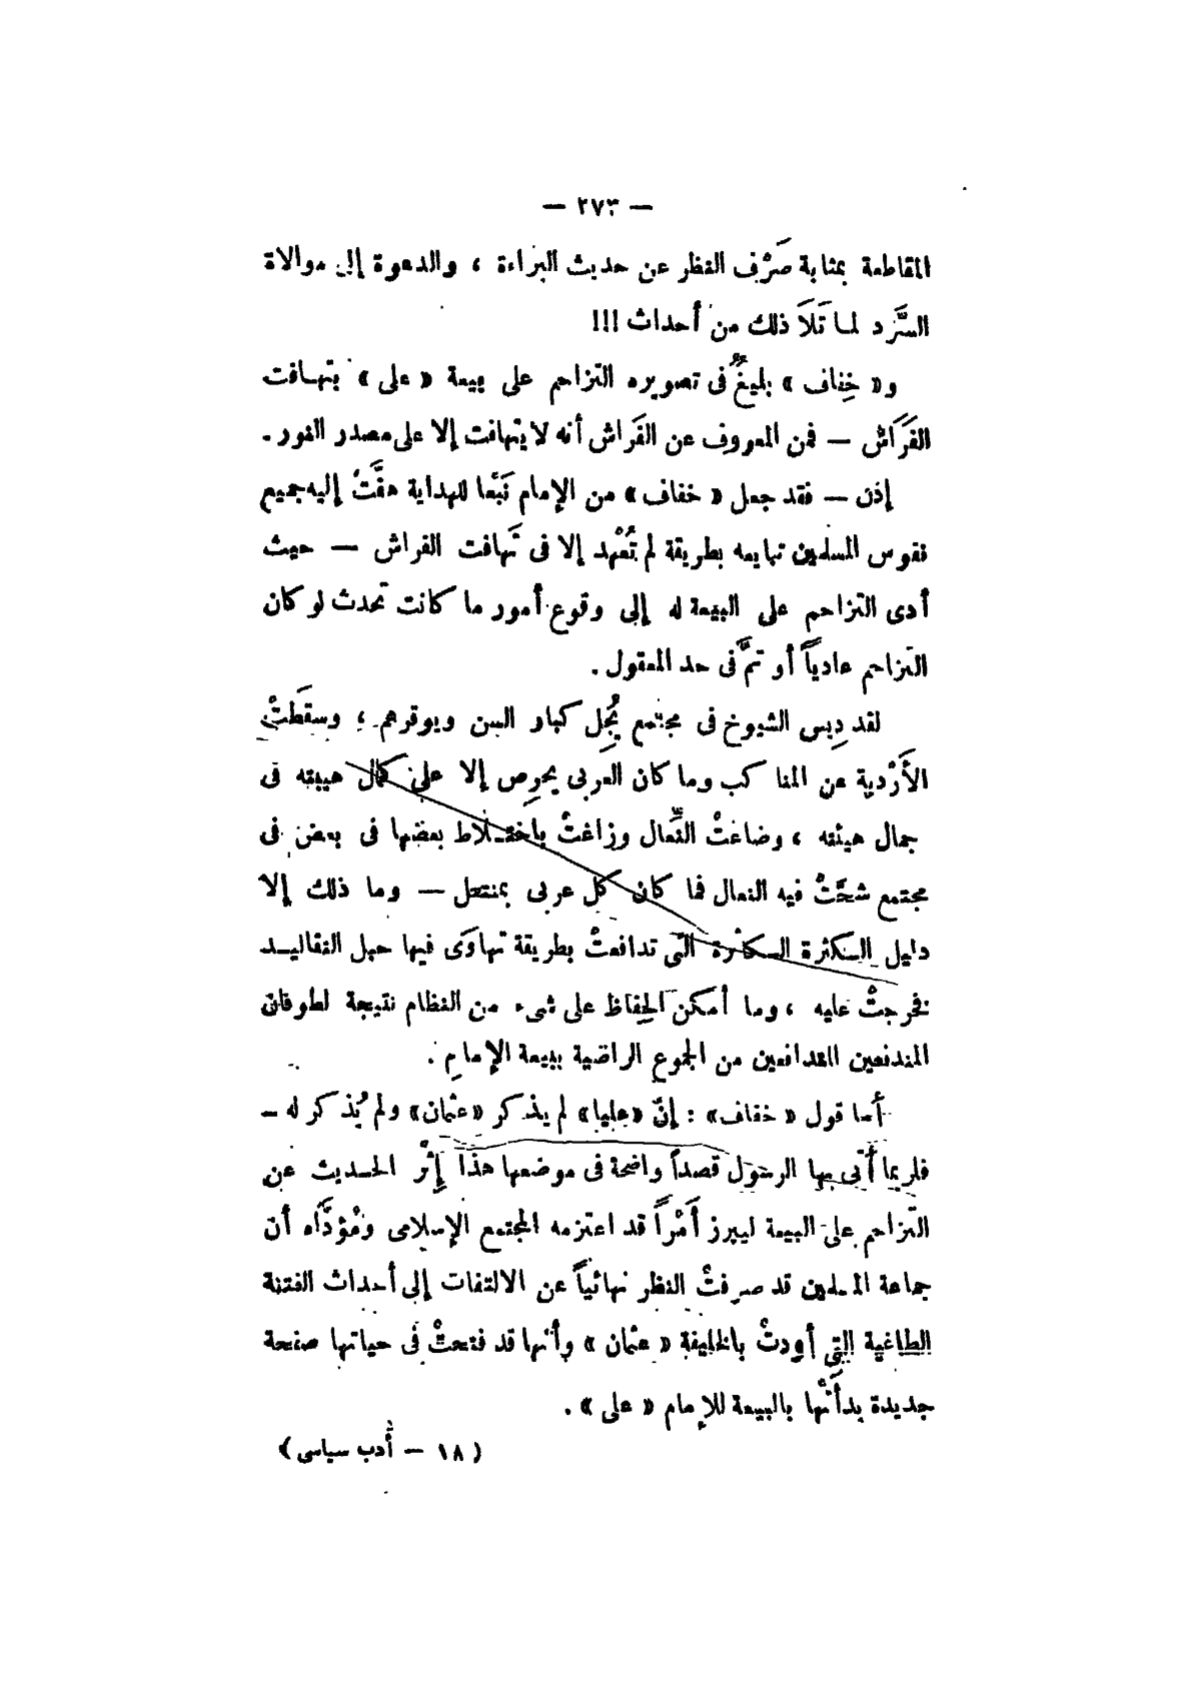 — ٢٧٣ —
المقاطعة بمثابة صَرْف النظر عن حديث البراءة ، والدعوة إلى موالاة
السَّرد لما تَلاَ ذلك من أحداث !!!
و« خِفاف » بليغٌ فى تصويره التزاحم على بيعة « على » بتهافت
الفَرَاش — فمن المعروف عن الفَراش أنه لا يتهافت إلا على مصدر النور .
إذن — فقد جعل « خفاف » من الإمام نَبْعا للهداية هفَّتْ إليه جميع
نفوس المسلمين تبايعه بطريقة لم تُعْهد إلا فى تَهافت الفراش — حيث
أدى التزاحم على البيعة له إلى وقوع أمور ما كانت تحدث لو كان
التزاحم عادياً أو تمَّ فى حد المعقول .
لقد دِيس الشيوخ فى مجتمع يُجِل كبار السن ويوقرهم ؛ وسقَطَتْ
الأَرْدية عن المناكب وما كان العربى يحرِص إلا على كمال هيبته فى
جمال هيئته ، وضاعَتْ النِّعال وزاغتْ باختـلاط بعضها فى بعض فى
مجتمع شحَّتْ فيه النعال فما كان كل عربى بمنتعل — وما ذلك إلا
دليل الكثرة الكاثرة التى تدافعتْ بطريقة تهاوَى فيها حبل التقاليـد
فخرجتْ عليه ، وما أمكن الحِفاظ على شىء من النظام نتيجة لطوفان
المندفعين المتدافعين من الجموع الراضية ببيعة الإمام .
أما قول « خفاف » : إنّ «عليا» لم يذكر «عثمان» ولم يُذكر له —
فلربما أتى بها الرسول قصداً واضحة فى موضعها هذا إِثْر الحـديث عن
التزاحم على البيعة ليبرز أمْراً قد اعتزمه المجتمع الإسلامى ومُؤدَّاه أن
جماعة المسلمين قد صرفتْ النظر نهائياً عن الالتفات إلى أحداث الفتنة
الطاغية التى أودتْ بالخليفة « عثمان » وأنها قد فتحتْ فى حياتها صفحة
جديدة بدأَتْها بالبيعة للإمام « على » .
( ١٨ — أدب سياسى )